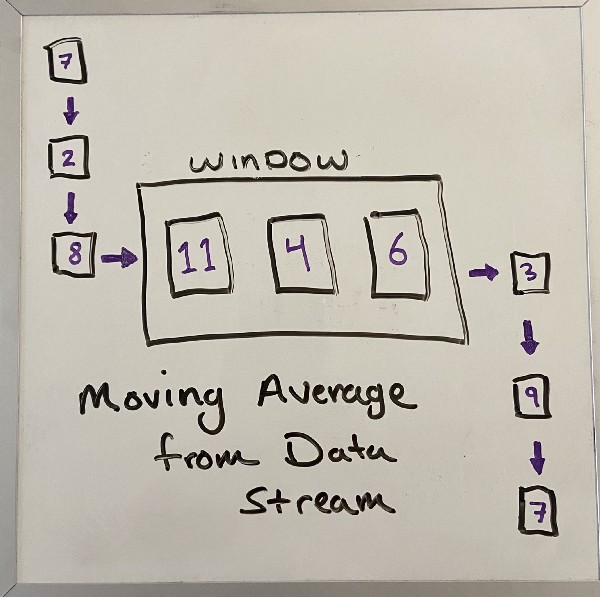 7
2
WINDOW
8 11 4 6 3
9
Moving Average
from Data
Stream
7